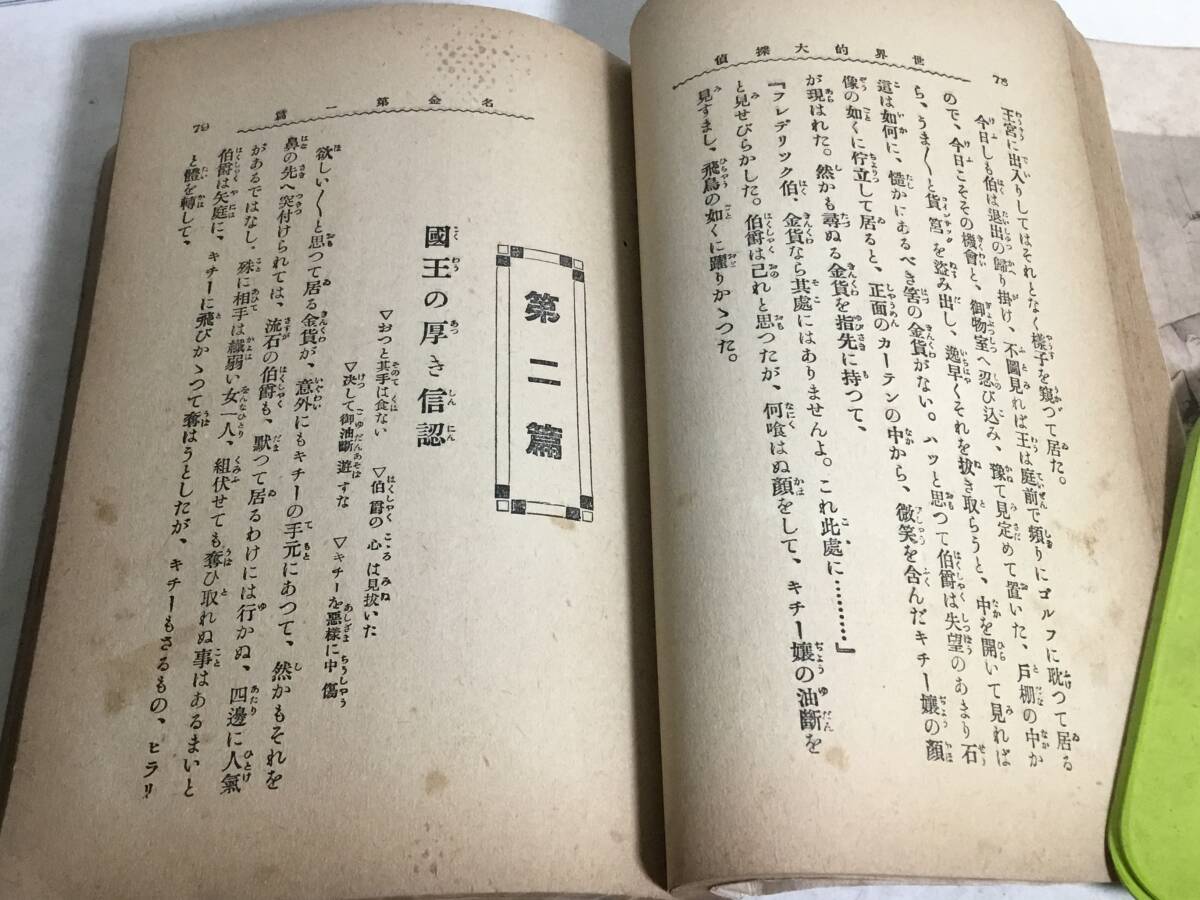 世界的大探偵
78
王宮に出入りしてはそれとなく樣子を窺つて居た。
今日しも伯は退出の歸り掛け、不圖見れば王は庭前で頻りにゴルフに耽つて居る
ので、今日こそその機會と、御物室へ忍び込み、豫て見定めて置いた、戸棚の中か
ら、うま〳〵と貨宮を盗み出し、逸早くそれを拔き取らうと、中を開いて見れば
這は如何に、慥かにあるべき筈の金貨がない。ハッと思つて伯爵は失望のあまり石
像の如くに佇立して居ると、正面のカーテンの中から、微笑を含んだキチー孃の顏
が現はれた。然かも尋ぬる金貨を指先に持つて、
『フレデリック伯、金貨なら其處にはありませんよ。これ此處に………』
と見せびらかした。伯爵は己れと思つたが、何喰はぬ顏をして、キチー孃の油斷を
見すまし、飛鳥の如くに躍りかゝつた。
名金第一篇
79
第二篇
國王の厚き信認
▽おつと其手は食ない ▽伯爵の心は見拔いた
▽決して御油斷遊すな ▽キチーを惡樣に中傷
欲しい〳〵と思つて居る金貨が、意外にもキチーの手元にあつて、然かもそれを
鼻の先へ突付けられては、流石の伯爵も、默つて居るわけには行かぬ、四邊に人氣
があるではなし、殊に相手は繊弱い女一人、組伏せても奪ひ取れぬ事はあるまいと
伯爵は矢庭に、キチーに飛びかゝつて奪はうとしたが、キチーもさるもの、ヒラリ
と體を轉して、